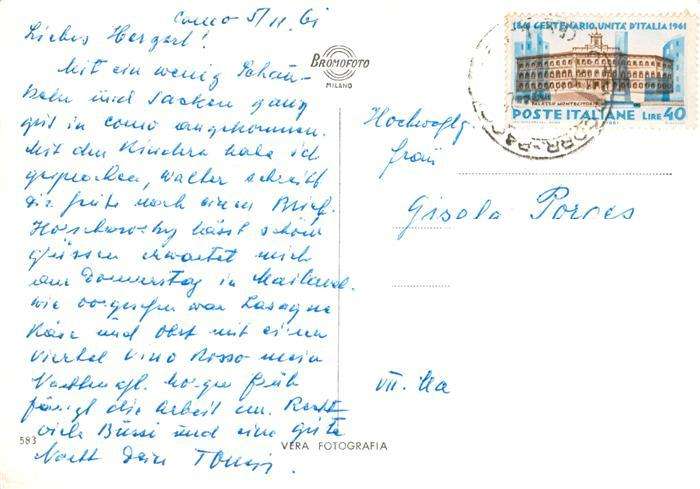 Como 5/11 61
Liebes Herzerl!
Mit ein wenig Schau-
keln und Sacken ganz
gut in Como angekommen.
Mit den Kindern habe ich
gesprochen, Walter schreibt
dir heute noch einen Brief.
Horschowsky lässt schön
grüssen erwartet mich
am Donnerstag in Mailand.
Wie vorgesehen war Lasagne
Käse und Obst mit einem
Viertel Vino Rosso mein
Nachtmahl. Morgen früh
fängt die Arbeit an. Recht
viele Bussi und eine gute
Nacht Dein
583
BROMOFOTO
MILANO
VERA FOTOGRAFIA
1861 CENTENARIO UNITÀ D'ITALIA 1961
PALAZZO MONTECITORIO
POSTE ITALIANE LIRE 40
Hochwohlg.
Frau
Gisela Porges